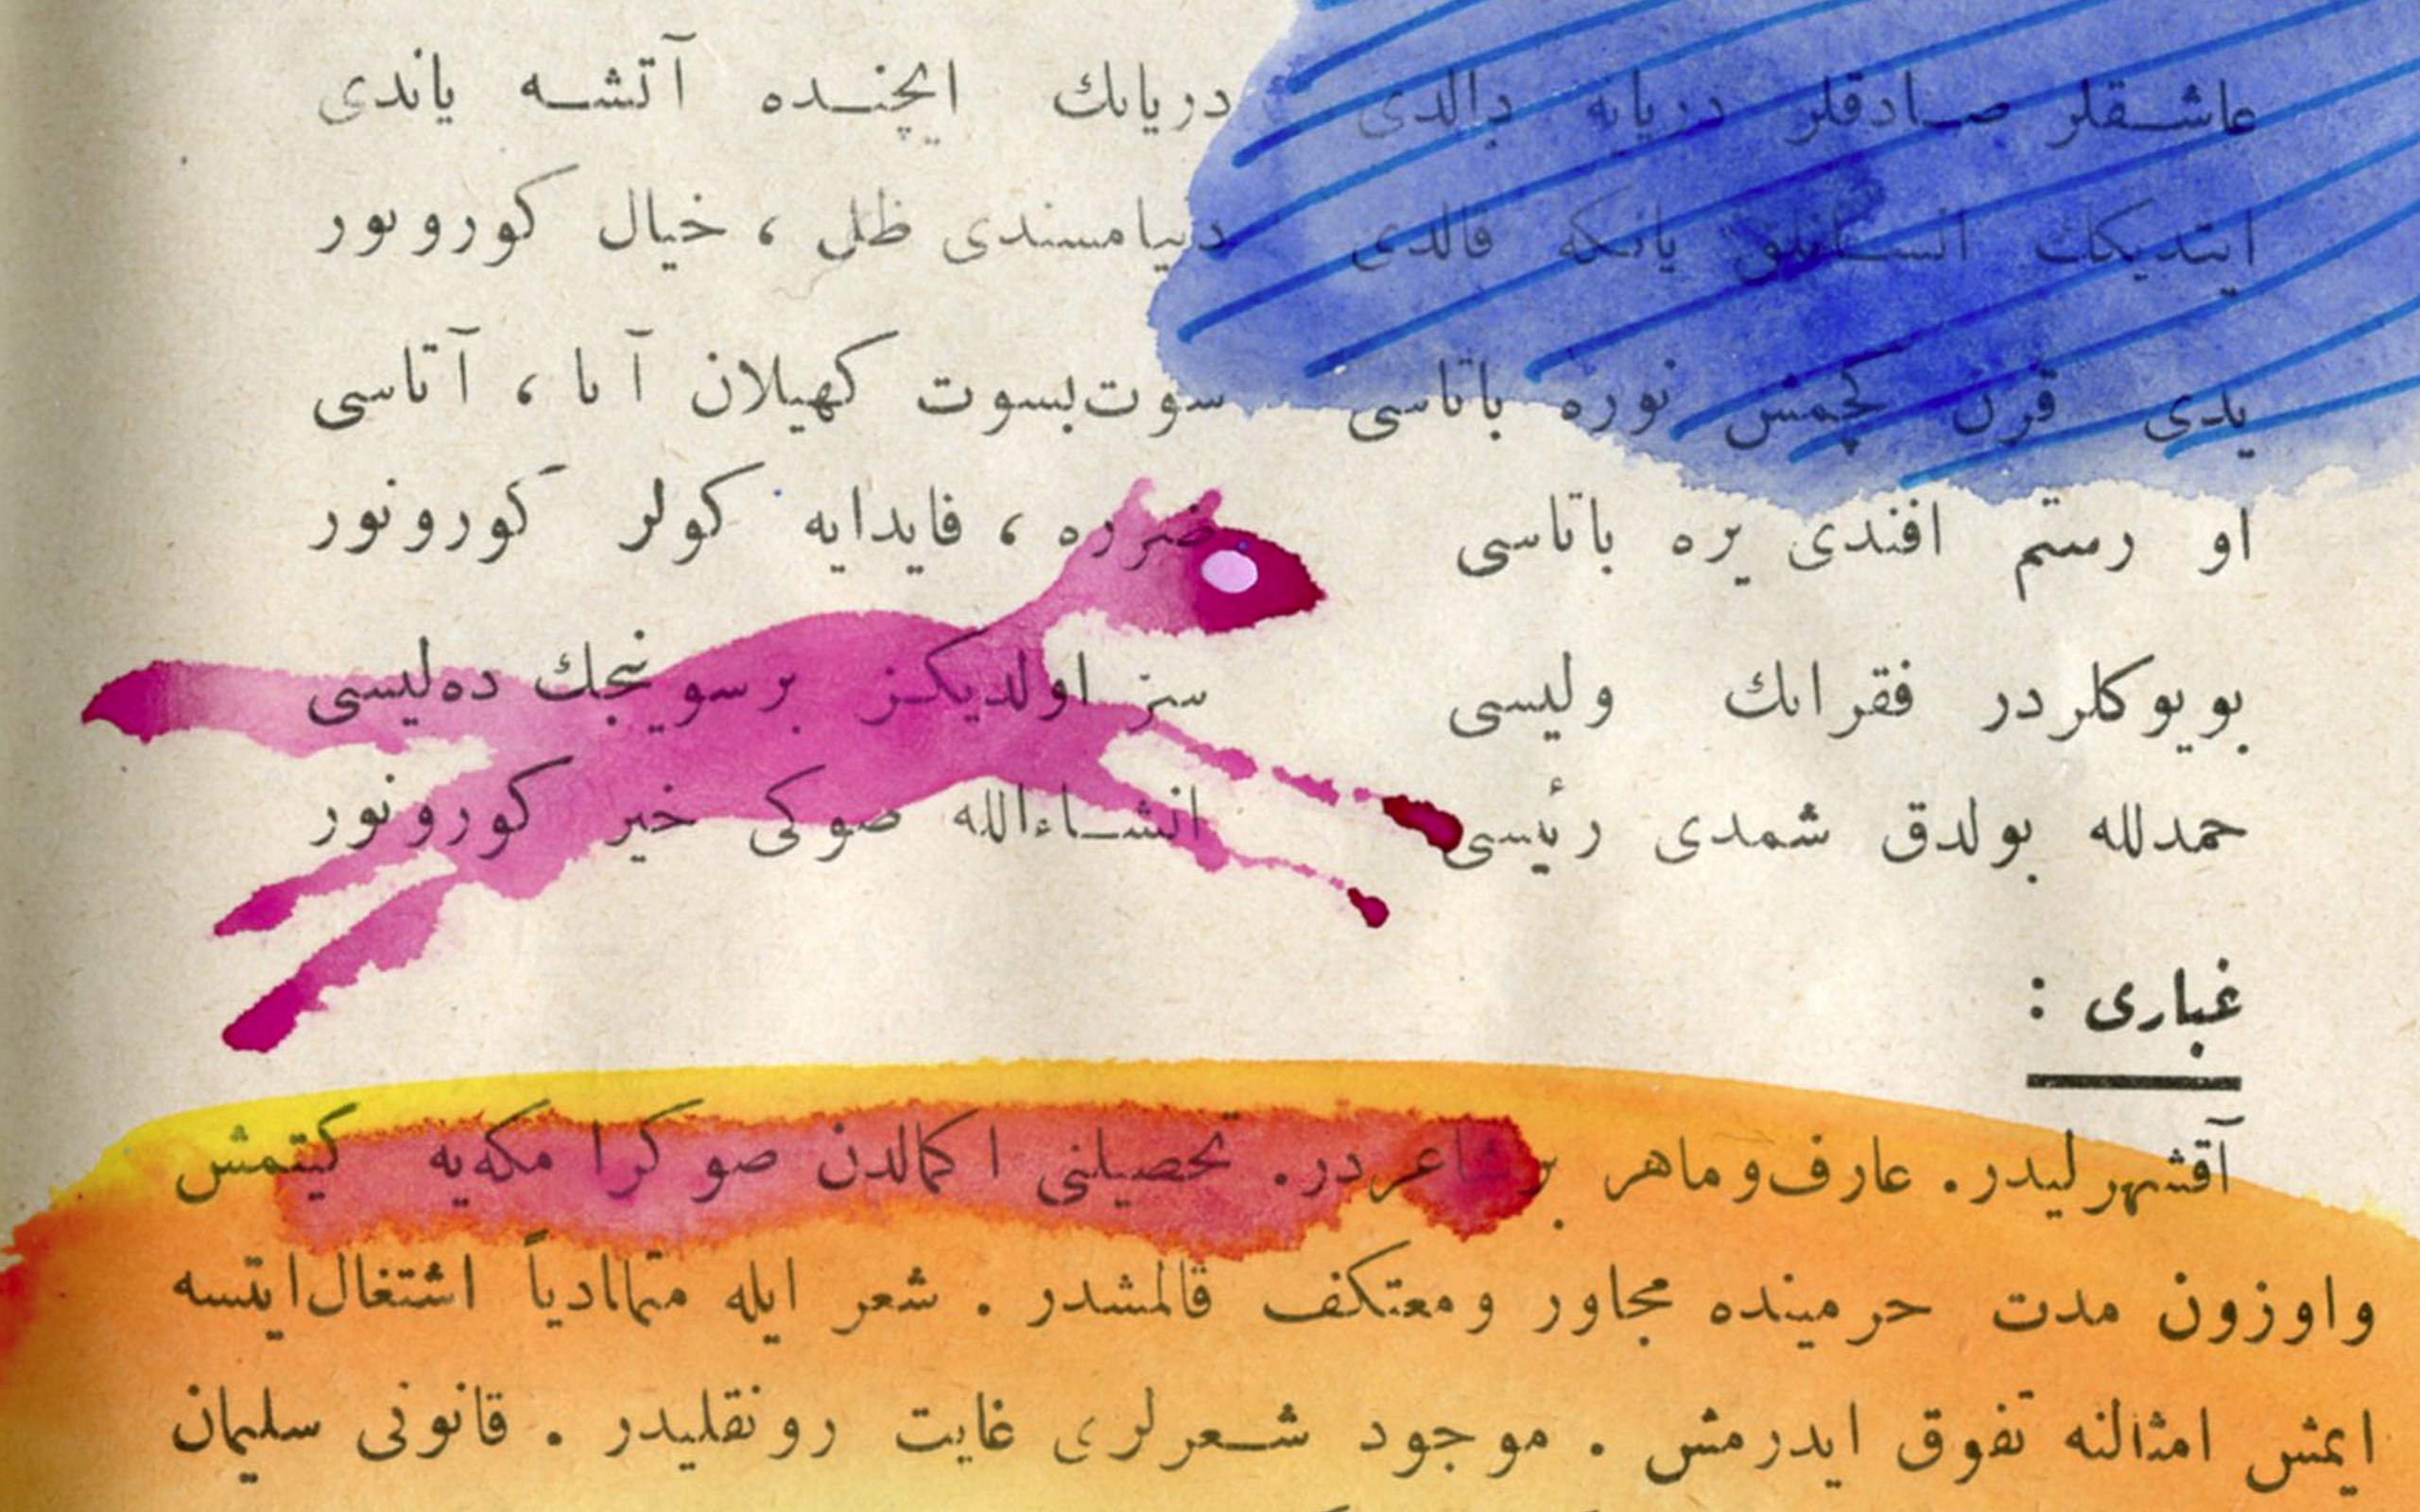 عاشقلر صادقلر دریایه دالدی دریانك ایچنده آتشه یاندی
ایتدیكك انسانلق یانكه قالدی دنیامسندی ظل ، خیال كورونور
یدی قرن كچمش نوره باتاسی سوت‌بسوت كهیلان آنا ، آتاسی
او رستم افندی یره باتاسی ضرره ، فایدایه كولر كورونور
بویوكلردر فقرانك ولیسی سز اولدیكز بر سونجك ده‌لیسی
حمدلله بولدق شمدی رئیسی انشاءالله صوكی خیر كورونور
غباری :
آقشهرلیدر. عارف وماهر بر شاعردر. تحصیلنی اكمالدن صوكرا مكه‌یه كیتمش
واوزون مدت حرمینده مجاور ومعتكف قالمشدر . شعر ایله متمادیاً اشتغال ایتسه
ایمش امثالنه تفوق ایدرمش . موجود شعرلری غایت رونقلیدر . قانونی سلیمان